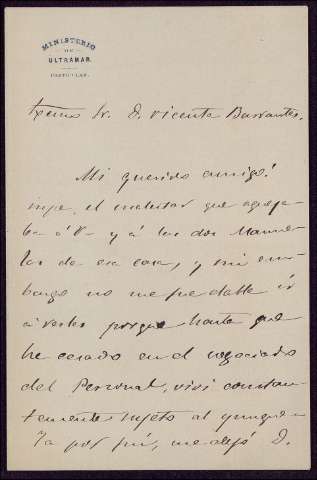 MINISTERIO
DE
ULTRAMAR.
PARTICULAR.
Excmo Sr. D. Vicente Barrantes.
Mi querido amigo:
supe el malestar que aqueja-
ba á V. y á las dos
de esa casa, y sin em-
bargo no me fue dable ir
á verlos porque hasta que
he cesado en el negociado
del Personal, viví constan-
temente sujeto al yunque.
Ya por fin, me dejó D.